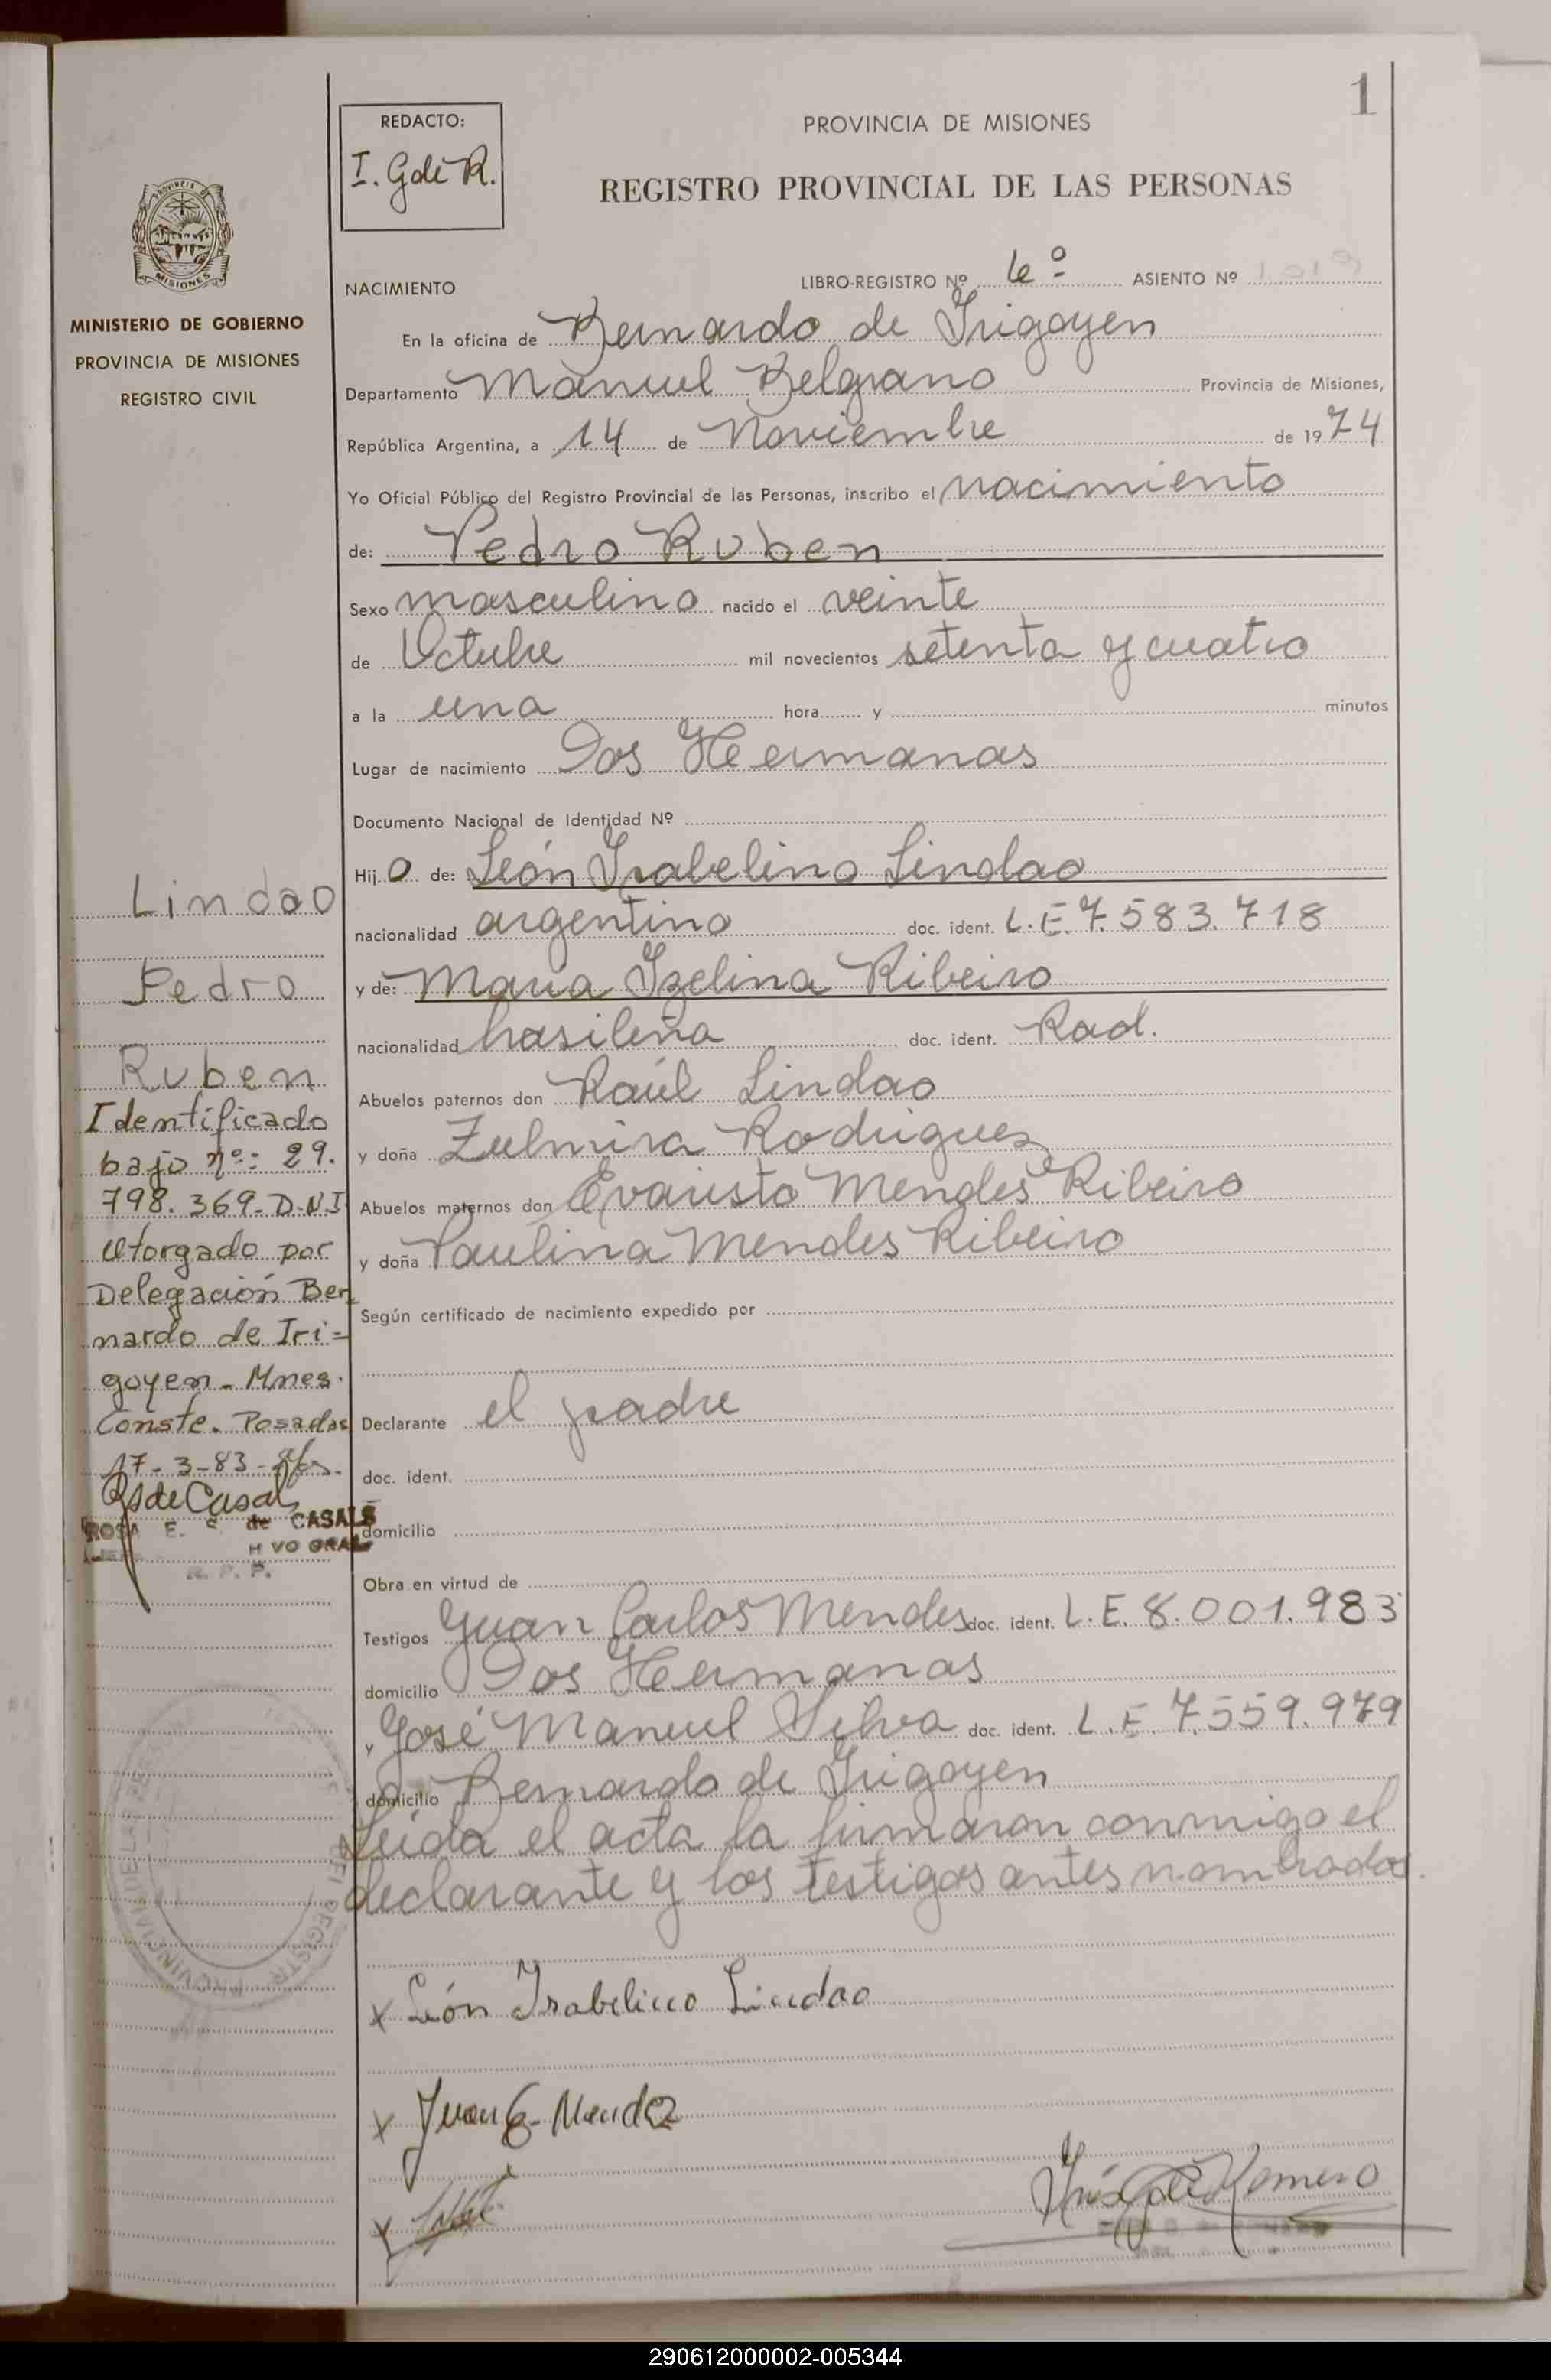 1
REDACTO:
I. G de R.
PROVINCIA DE MISIONES
REGISTRO PROVINCIAL DE LAS PERSONAS
PROVINCIA DE
MISIONES
MINISTERIO DE GOBIERNO
PROVINCIA DE MISIONES
REGISTRO CIVIL
NACIMIENTO LIBRO-REGISTRO Nº 6º ASIENTO Nº 1019
En la oficina de Bernardo de Irigoyen
Departamento Manuel Belgrano Provincia de Misiones,
República Argentina, a 14 de Noviembre de 1974
Yo Oficial Público del Registro Provincial de las Personas, inscribo el nacimiento
de: Pedro Ruben
Sexo masculino nacido el veinte
de Octubre mil novecientos setenta y cuatro
a la una hora y minutos
Lugar de nacimiento Dos Hermanas
Documento Nacional de Identidad Nº
Hijo de: León Isabelino Lindao
nacionalidad argentino doc. ident. L.E. 7.583.718
y de: María Izelina Ribeiro
nacionalidad brasileña doc. ident. Rad.
Abuelos paternos don Raúl Lindao
y doña Zulmira Rodriguez
Abuelos maternos don Evaristo Mendes Ribeiro
y doña Paulina Mendes Ribeiro
Según certificado de nacimiento expedido por
Declarante el padre
doc. ident.
domicilio
Obra en virtud de
Testigos Juan Carlos Mendes doc. ident. L.E. 8.001.983
domicilio Dos Hermanas
y José Manuel Silva doc. ident. L.E. 7.559.979
domicilio Bernardo de Irigoyen
Leída el acta la firmaron conmigo el
declarante y los testigos antes nombrados.
x León Isabelino Lindao
x Juan C. Mendez
x
Inés G de Romero
Lindao
Pedro
Ruben
Identificado
bajo nº: 29.
798.369-D.N.I
Otorgado por
Delegación Ber
nardo de Iri=
goyen - Mnes.
Conste. Posadas
17-3-83-
RS de Casals
ROSA E. S de CASALS
VO GRAL
R. P. P.
290612000002-005344